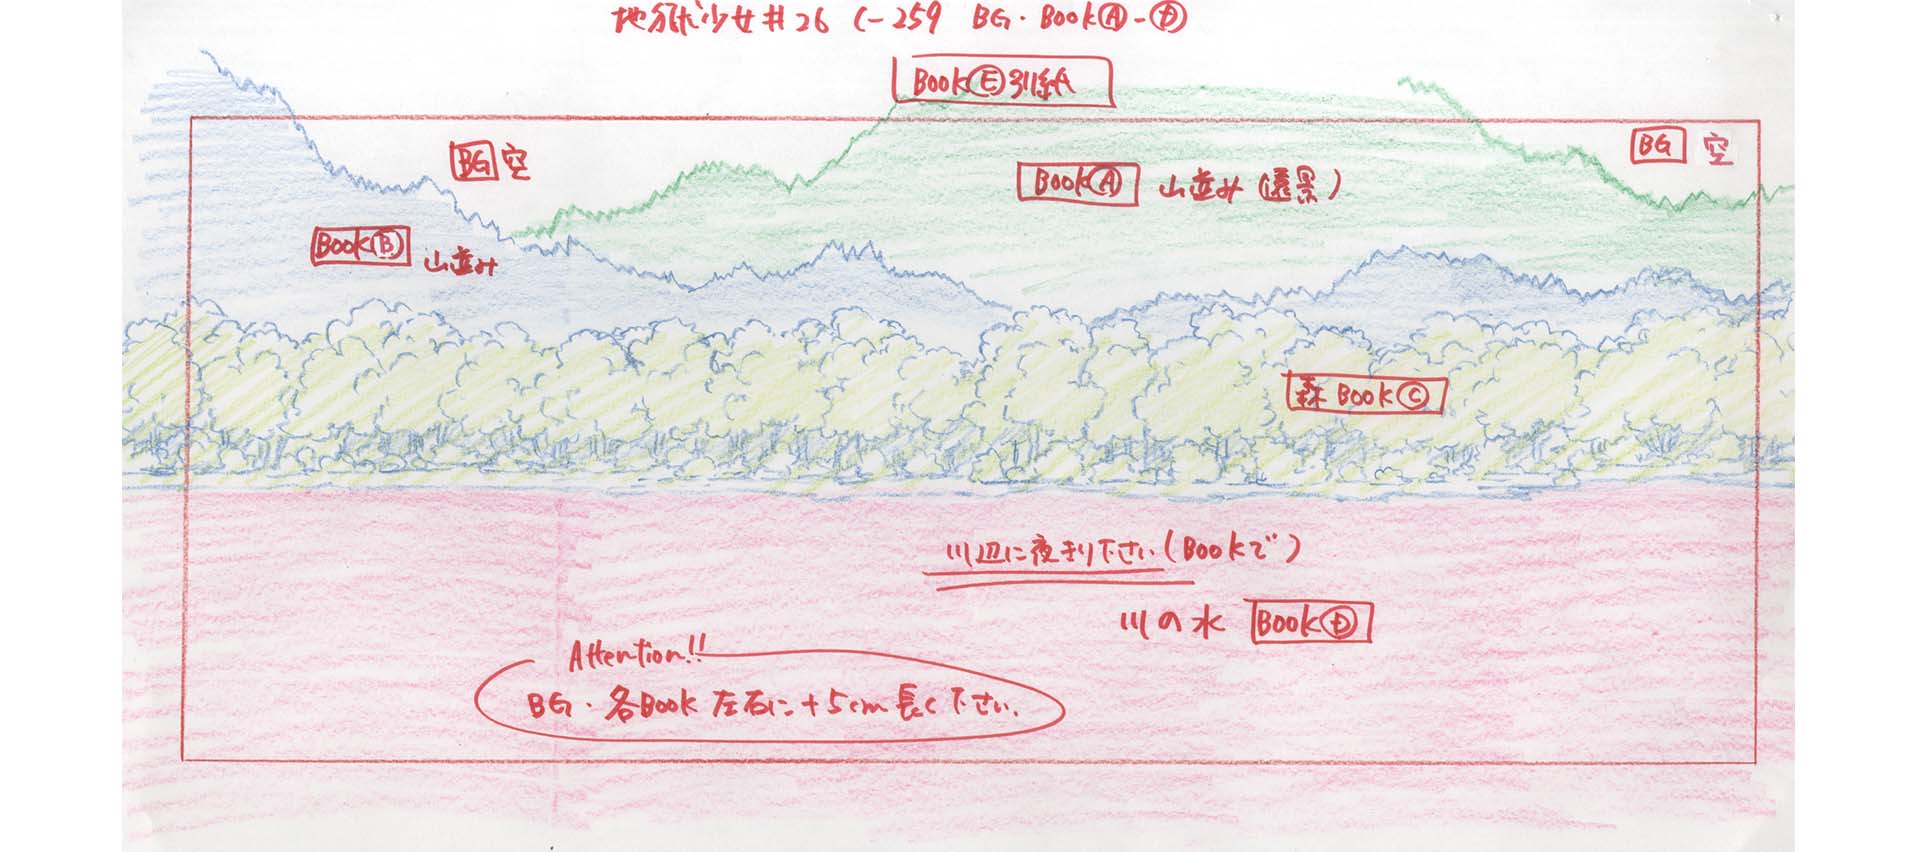 地獄少女#26 C-259 BG・BookⒶ-Ⓓ
BookⒺ引紙
BG 空
BG 空
BookⒶ 山並み(遠景)
BookⒷ 山並み
森 BookⒸ
川辺に 下さい(Bookで)
川の水 BookⒹ
Attention!!
BG・各Book 左右に+5cm 長く下さい.